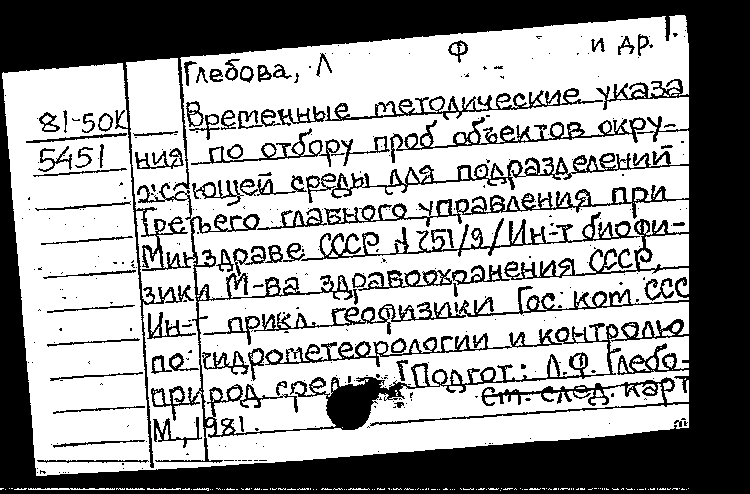 Глебова, Л Ф и др. 1.
81-50К Временные методические указа
5451 ния по отбору проб объектов окру-
жающей среды для подразделений
Третьего главного управления при
Минздраве СССР N 251/9/Ин-т биофи-
зики М-ва здравоохранения СССР,
Ин-т прикл. геофизики Гос. ком. ССС
по гидрометеорологии и контролю
природ. сред [Подгот.: Л.Ф. Глебо-
см. след. карт
М., 1981.